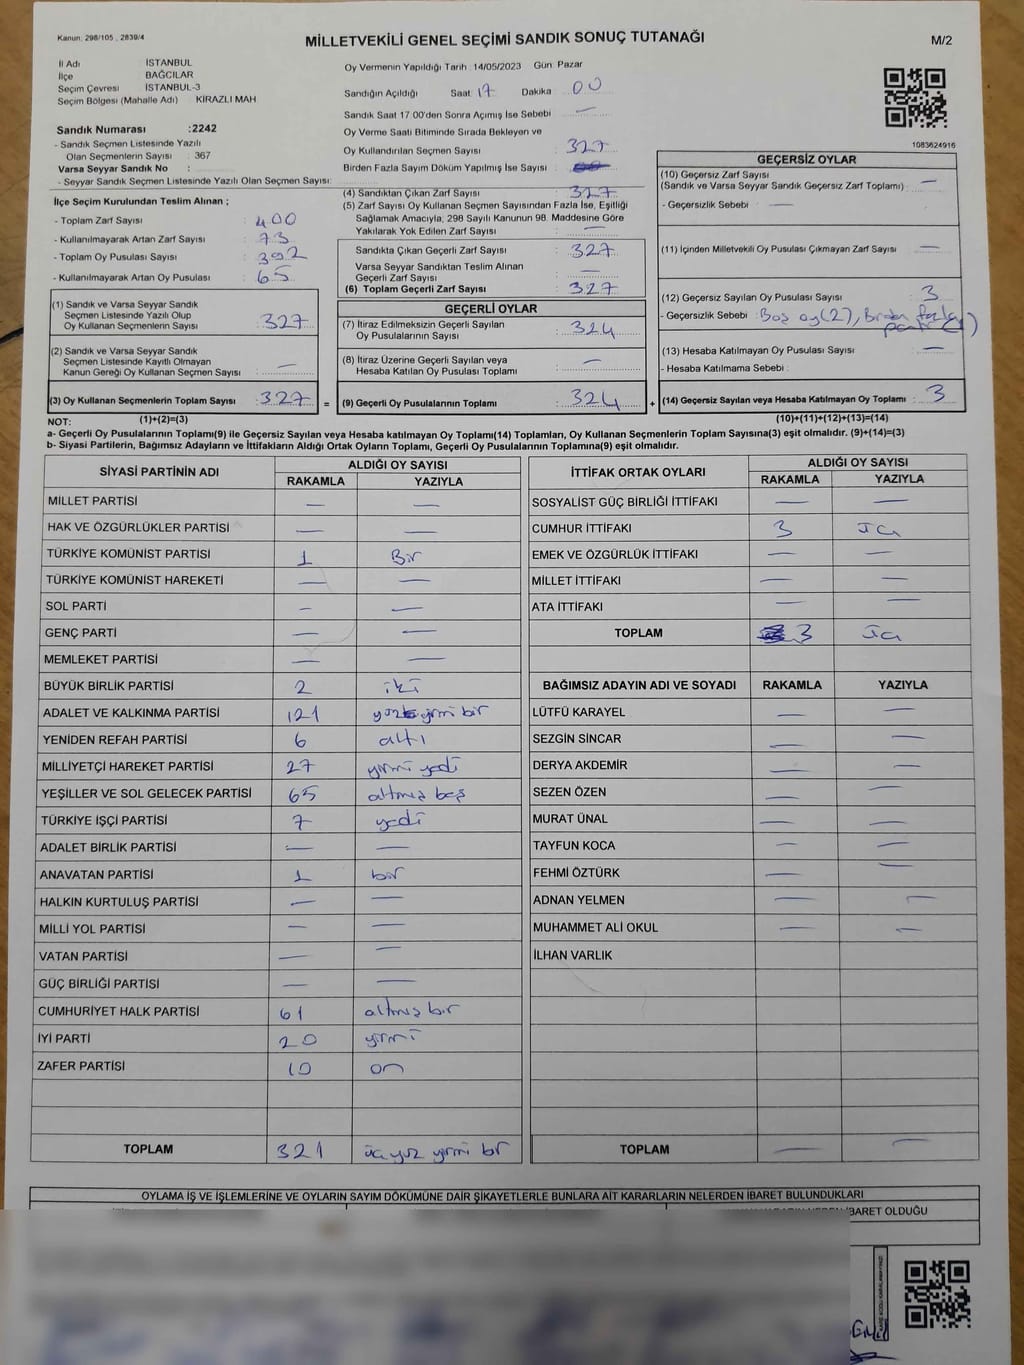 Kanun: 298/105 , 2839/4
MİLLETVEKİLİ GENEL SEÇİMİ SANDIK SONUÇ TUTANAĞI
M/2
İl Adı İSTANBUL
İlçe BAĞCILAR
Seçim Çevresi İSTANBUL-3
Seçim Bölgesi (Mahalle Adı) KİRAZLI MAH
Sandık Numarası :2242
- Sandık Seçmen Listesinde Yazılı
Olan Seçmenlerin Sayısı : 367
Varsa Seyyar Sandık No :
- Seyyar Sandık Seçmen Listesinde Yazılı Olan Seçmen Sayısı:
İlçe Seçim Kurulundan Teslim Alınan ;
- Toplam Zarf Sayısı : 400
- Kullanılmayarak Artan Zarf Sayısı : 73
- Toplam Oy Pusulası Sayısı : 392
- Kullanılmayarak Artan Oy Pusulası : 65
(1) Sandık ve Varsa Seyyar Sandık
Seçmen Listesinde Yazılı Olup
Oy Kullanan Seçmenlerin Sayısı : 327
(2) Sandık ve Varsa Seyyar Sandık
Seçmen Listesinde Kayıtlı Olmayan
Kanun Gereği Oy Kullanan Seçmen Sayısı : —
(3) Oy Kullanan Seçmenlerin Toplam Sayısı : 327 =
Oy Vermenin Yapıldığı Tarih :14/05/2023 Gün: Pazar
Sandığın Açıldığı Saat : 17 Dakika : 00
Sandık Saat 17:00'den Sonra Açımış İse Sebebi : —
Oy Verme Saati Bitiminde Sırada Bekleyen ve
Oy Kullandırılan Seçmen Sayısı : 327
Birden Fazla Sayım Döküm Yapılmış İse Sayısı :
(4) Sandıktan Çıkan Zarf Sayısı : 327
(5) Zarf Sayısı Oy Kullanan Seçmen Sayısından Fazla İse, Eşitliği
Sağlamak Amacıyla; 298 Sayılı Kanunun 98. Maddesine Göre
Yakılarak Yok Edilen Zarf Sayısı : —
Sandıkta Çıkan Geçerli Zarf Sayısı : 327
Varsa Seyyar Sandıktan Teslim Alınan
Geçerli Zarf Sayısı : —
(6) Toplam Geçerli Zarf Sayısı : 327
GEÇERLİ OYLAR
(7) İtiraz Edilmeksizin Geçerli Sayılan
Oy Pusulalarının Sayısı : 324
(8) İtiraz Üzerine Geçerli Sayılan veya
Hesaba Katılan Oy Pusulası Toplamı : —
(9) Geçerli Oy Pusulalarının Toplamı : 324 +
1083624916
GEÇERSİZ OYLAR
(10) Geçersiz Zarf Sayısı
(Sandık ve Varsa Seyyar Sandık Geçersiz Zarf Toplamı) : —
- Geçersizlik Sebebi : —
(11) İçinden Milletvekili Oy Pusulası Çıkmayan Zarf Sayısı : —
(12) Geçersiz Sayılan Oy Pusulası Sayısı : 3
- Geçersizlik Sebebi : Boş oy(2), Birden fazla
parti (1)
(13) Hesaba Katılmayan Oy Pusulası Sayısı : —
- Hesaba Katılmama Sebebi :
(14) Geçersiz Sayılan veya Hesaba Katılmayan Oy Toplamı : 3
NOT: (1)+(2)=(3) (10)+(11)+(12)+(13)=(14)
a- Geçerli Oy Pusulalarının Toplamı(9) ile Geçersiz Sayılan veya Hesaba katılmayan Oy Toplamı(14) Toplamları, Oy Kullanan Seçmenlerin Toplam Sayısına(3) eşit olmalıdır. (9)+(14)=(3)
b- Siyasi Partilerin, Bağımsız Adayların ve İttifakların Aldığı Ortak Oyların Toplamı, Geçerli Oy Pusulalarının Toplamına(9) eşit olmalıdır.
SİYASİ PARTİNİN ADI ALDIĞI OY SAYISI
RAKAMLA YAZIYLA
MİLLET PARTİSİ — —
HAK VE ÖZGÜRLÜKLER PARTİSİ — —
TÜRKİYE KOMÜNİST PARTİSİ 1 Bir
TÜRKİYE KOMÜNİST HAREKETİ — —
SOL PARTİ — —
GENÇ PARTİ — —
MEMLEKET PARTİSİ — —
BÜYÜK BİRLİK PARTİSİ 2 iki
ADALET VE KALKINMA PARTİSİ 121 yüzyirmi bir
YENİDEN REFAH PARTİSİ 6 altı
MİLLİYETÇİ HAREKET PARTİSİ 27 yirmi yedi
YEŞİLLER VE SOL GELECEK PARTİSİ 65 altmış beş
TÜRKİYE İŞÇİ PARTİSİ 7 yedi
ADALET BİRLİK PARTİSİ — —
ANAVATAN PARTİSİ 1 bir
HALKIN KURTULUŞ PARTİSİ — —
MİLLİ YOL PARTİSİ — —
VATAN PARTİSİ — —
GÜÇ BİRLİĞİ PARTİSİ — —
CUMHURİYET HALK PARTİSİ 61 altmış bir
İYİ PARTİ 20 yirmi
ZAFER PARTİSİ 10 on
TOPLAM 321 üçyüz yirmi bir
İTTİFAK ORTAK OYLARI ALDIĞI OY SAYISI
RAKAMLA YAZIYLA
SOSYALİST GÜÇ BİRLİĞİ İTTİFAKI — —
CUMHUR İTTİFAKI 3 üç
EMEK VE ÖZGÜRLÜK İTTİFAKI — —
MİLLET İTTİFAKI — —
ATA İTTİFAKI — —
TOPLAM 3 üç
BAĞIMSIZ ADAYIN ADI VE SOYADI RAKAMLA YAZIYLA
LÜTFÜ KARAYEL — —
SEZGİN SİNCAR — —
DERYA AKDEMİR — —
SEZEN ÖZEN — —
MURAT ÜNAL — —
TAYFUN KOCA — —
FEHMİ ÖZTÜRK — —
ADNAN YELMEN — —
MUHAMMET ALİ OKUL — —
İLHAN VARLIK
TOPLAM — —
OYLAMA İŞ VE İŞLEMLERİNE VE OYLARIN SAYIM DÖKÜMÜNE DAİR ŞİKAYETLERLE BUNLARA AİT KARARLARIN NELERDEN İBARET BULUNDUKLARI
İBARET OLDUĞU